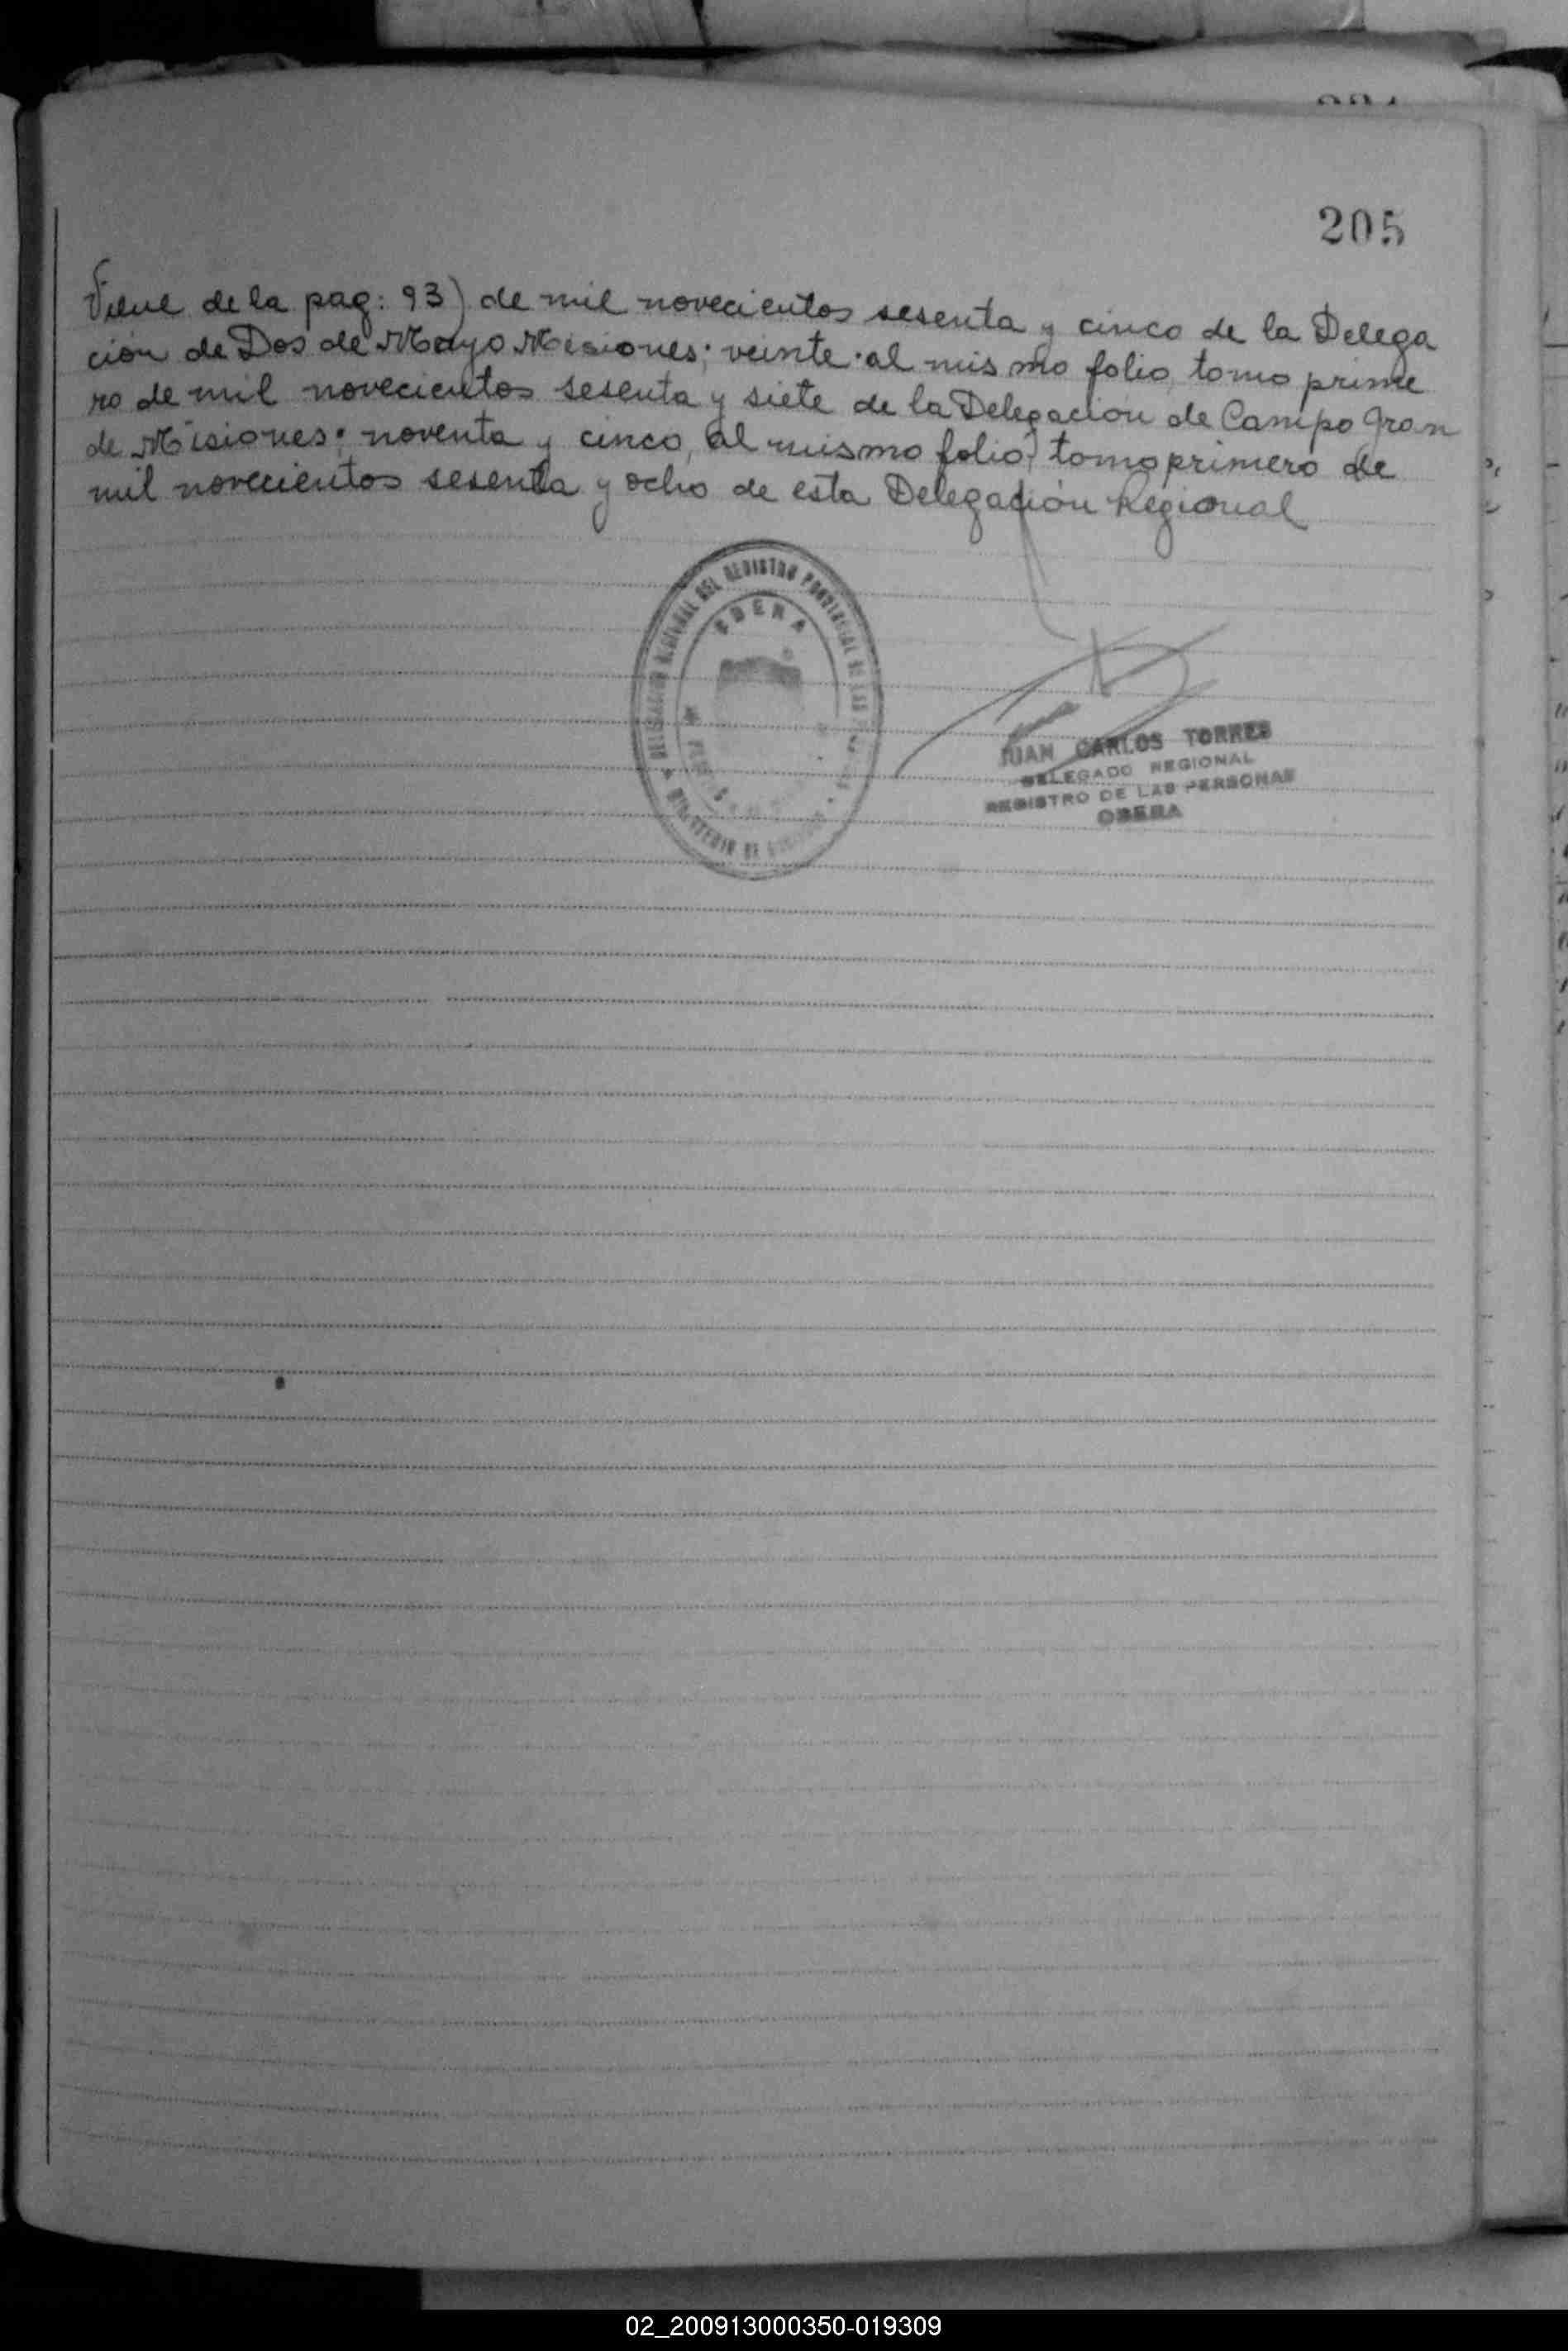 205
Viene de la pag: 93) de mil novecientos sesenta y cinco de la Delega
ción de Dos de Mayo Misiones; veinte al mismo folio, tomo prime
ro de mil novecientos sesenta y siete de la Delegación de Campo Gran
de Misiones; noventa y cinco, al mismo folio, tomo primero de
mil novecientos sesenta y ocho de esta Delegación Regional
DEL REGISTRO PROVINCIAL DE LAS
OBERA
MINISTERIO DE
JUAN CARLOS TORRES
DELEGADO REGIONAL
REGISTRO DE LAS PERSONAS
OBERA
02_200913000350-019309